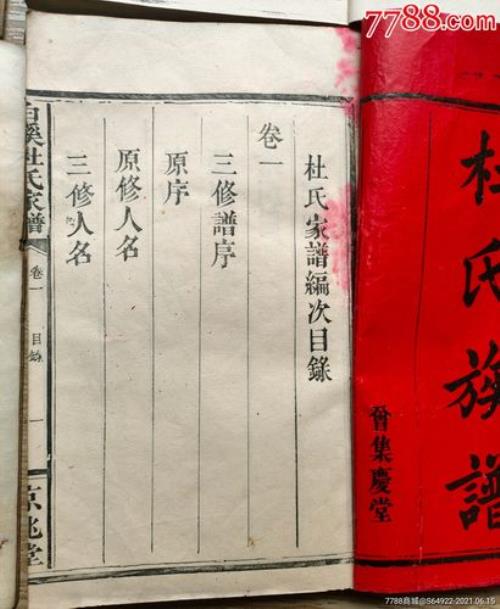 7788.com
杜氏族譜
晉集慶堂
杜氏家譜編次目錄
卷一
三修譜序
原序
原修人名
三修人名
白溪杜氏家譜
卷一
目錄
一
京兆堂
7788商城@S64922-2021.06.15